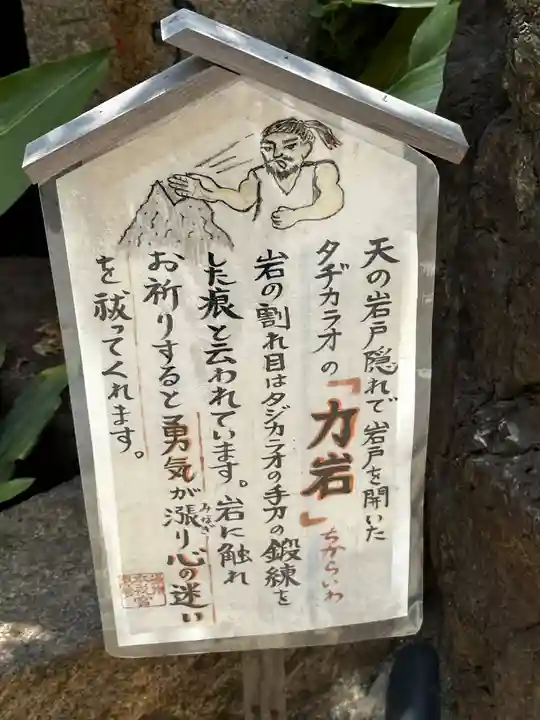 天の岩戸隠れで岩戸を開いた
タヂカラオの「力岩」ちからいわ
岩の割れ目はタジカラオの手刀の鍛練を
した痕と云われています。岩に触れ
お祈りすると勇気が漲り心の迷い
みなぎ
を祓ってくれます。